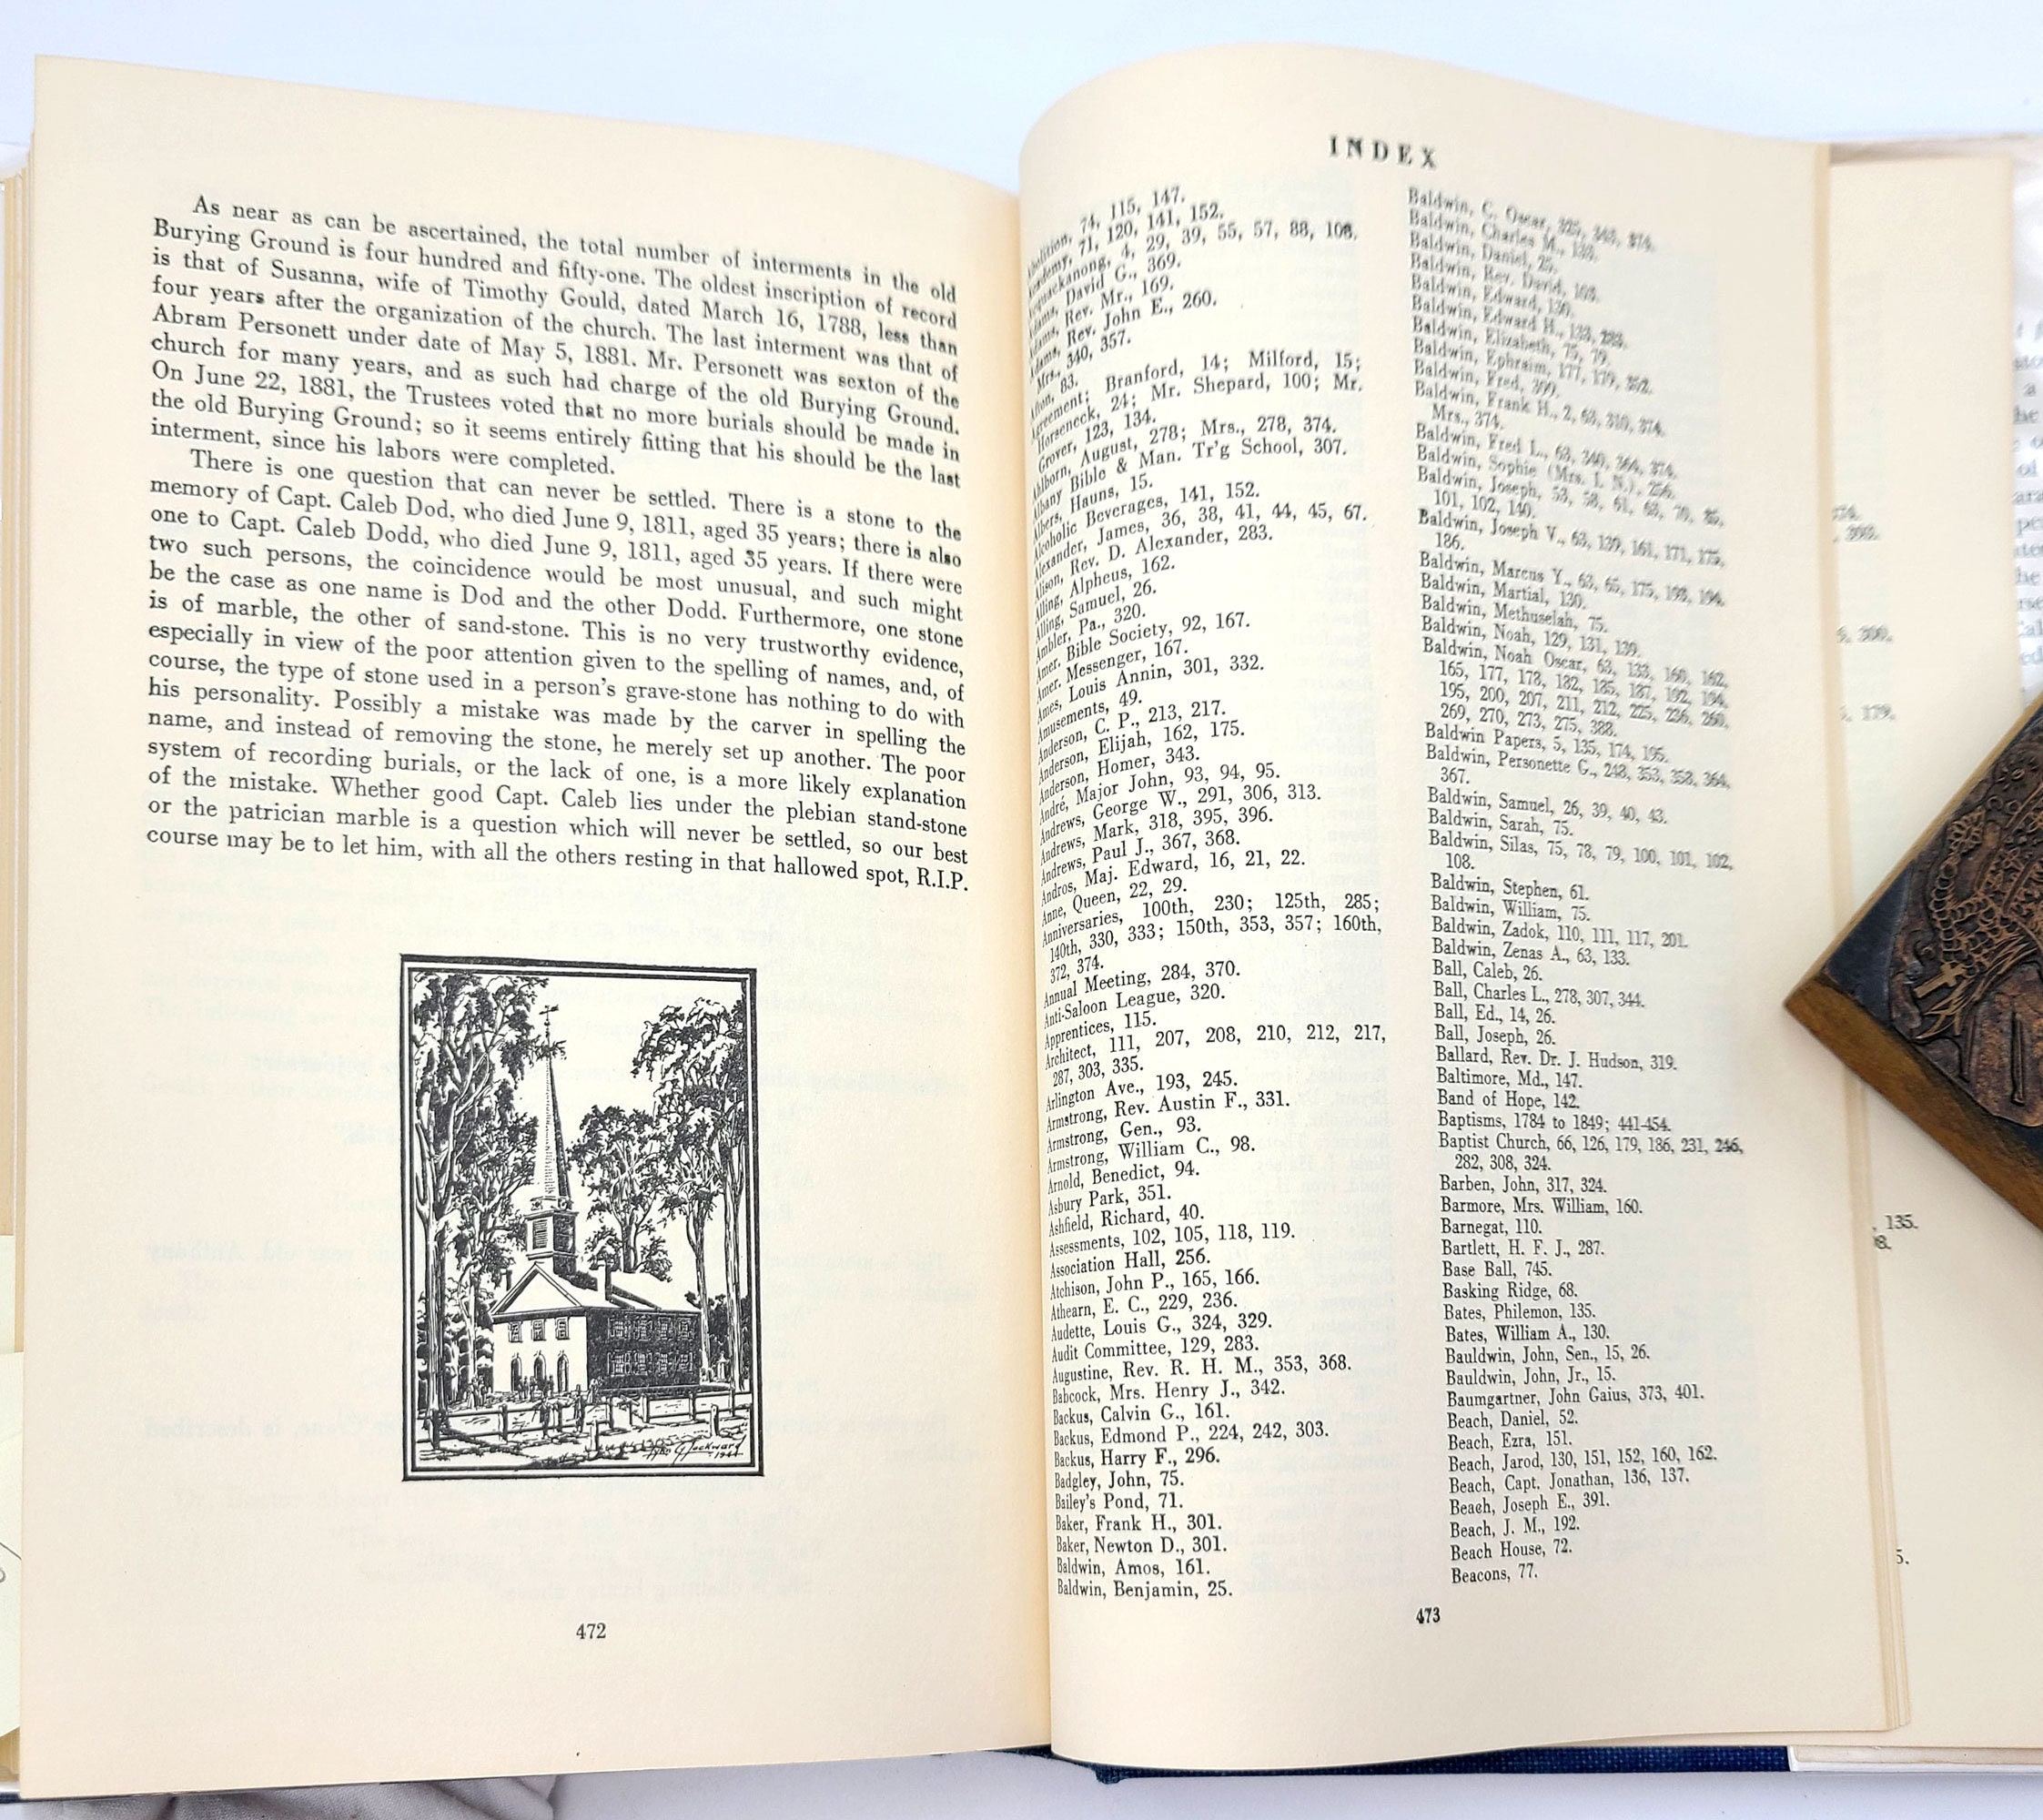 As near as can be ascertained, the total number of interments in the old
Burying Ground is four hundred and fifty-one. The oldest inscription of record
is that of Susanna, wife of Timothy Gould, dated March 16, 1788, less than
four years after the organization of the church. The last interment was that of
Abram Personett under date of May 5, 1881. Mr. Personett was sexton of the
church for many years, and as such had charge of the old Burying Ground.
On June 22, 1881, the Trustees voted that no more burials should be made in
the old Burying Ground; so it seems entirely fitting that his should be the last
interment, since his labors were completed.
There is one question that can never be settled. There is a stone to the
memory of Capt. Caleb Dod, who died June 9, 1811, aged 35 years; there is also
one to Capt. Caleb Dodd, who died June 9, 1811, aged 35 years. If there were
two such persons, the coincidence would be most unusual, and such might
be the case as one name is Dod and the other Dodd. Furthermore, one stone
is of marble, the other of sand-stone. This is no very trustworthy evidence,
especially in view of the poor attention given to the spelling of names, and, of
course, the type of stone used in a person's grave-stone has nothing to do with
his personality. Possibly a mistake was made by the carver in spelling the
name, and instead of removing the stone, he merely set up another. The poor
system of recording burials, or the lack of one, is a more likely explanation
of the mistake. Whether good Capt. Caleb lies under the plebian stand-stone
or the patrician marble is a question which will never be settled, so our best
course may be to let him, with all the others resting in that hallowed spot, R.I.P.
472
INDEX
Abolition, 74, 115, 147.
Academy, 71, 120, 141, 152.
Acquackanong, 4, 29, 39, 55, 57, 88, 108.
Adams, David G., 369.
Adams, Rev. Mr., 169.
Adams, Rev. John E., 260.
Mrs., 340, 357.
Afton, 83.
Agreement; Branford, 14; Milford, 15;
Horseneck, 24; Mr. Shepard, 100; Mr.
Grover, 123, 134.
Ahlborn, August, 278; Mrs., 278, 374.
Albany Bible & Man. Tr'g School, 307.
Albers, Hauns, 15.
Alcoholic Beverages, 141, 152.
Alexander, James, 36, 38, 41, 44, 45, 67.
Alison, Rev. D. Alexander, 283.
Alling, Alpheus, 162.
Alling, Samuel, 26.
Ambler, Pa., 320.
Amer. Bible Society, 92, 167.
Amer. Messenger, 167.
Ames, Louis Annin, 301, 332.
Amusements, 49.
Anderson, C. P., 213, 217.
Anderson, Elijah, 162, 175.
Anderson, Homer, 343.
André, Major John, 93, 94, 95.
Andrews, George W., 291, 306, 313.
Andrews, Mark, 318, 395, 396.
Andrews, Paul J., 367, 368.
Andros, Maj. Edward, 16, 21, 22.
Anne, Queen, 22, 29.
Anniversaries, 100th, 230; 125th, 285;
140th, 330, 333; 150th, 353, 357; 160th,
372, 374.
Annual Meeting, 284, 370.
Anti-Saloon League, 320.
Apprentices, 115.
Architect, 111, 207, 208, 210, 212, 217,
287, 303, 335.
Arlington Ave., 193, 245.
Armstrong, Rev. Austin F., 331.
Armstrong, Gen., 93.
Armstrong, William C., 98.
Arnold, Benedict, 94.
Asbury Park, 351.
Ashfield, Richard, 40.
Assessments, 102, 105, 118, 119.
Association Hall, 256.
Atchison, John P., 165, 166.
Athearn, E. C., 229, 236.
Audette, Louis G., 324, 329.
Audit Committee, 129, 283.
Augustine, Rev. R. H. M., 353, 368.
Babcock, Mrs. Henry J., 342.
Backus, Calvin G., 161.
Backus, Edmond P., 224, 242, 303.
Backus, Harry F., 296.
Badgley, John, 75.
Bailey's Pond, 71.
Baker, Frank H., 301.
Baker, Newton D., 301.
Baldwin, Amos, 161.
Baldwin, Benjamin, 25.
Baldwin, C. Oscar, 325, 343, 374.
Baldwin, Charles M., 133.
Baldwin, Daniel, 25.
Baldwin, Rev. David, 103.
Baldwin, Edward, 130.
Baldwin, Edward H., 133, 283.
Baldwin, Elizabeth, 75, 79.
Baldwin, Ephraim, 177, 179, 352.
Baldwin, Fred, 399.
Baldwin, Frank H., 2, 63, 310, 374.
Mrs., 374.
Baldwin, Fred L., 63, 340, 364, 374.
Baldwin, Sophie (Mrs. I. N.), 256.
Baldwin, Joseph, 53, 58, 61, 63, 70, 85,
101, 102, 140.
Baldwin, Joseph V., 63, 139, 161, 171, 175,
186.
Baldwin, Marcus Y., 63, 65, 175, 193, 194.
Baldwin, Martial, 130.
Baldwin, Methuselah, 75.
Baldwin, Noah, 129, 131, 139.
Baldwin, Noah Oscar, 63, 133, 160, 162,
165, 177, 178, 182, 185, 187, 192, 194,
195, 200, 207, 211, 212, 225, 236, 260,
269, 270, 273, 275, 388.
Baldwin Papers, 5, 135, 174, 195.
Baldwin, Personette G., 248, 353, 358, 364,
367.
Baldwin, Samuel, 26, 39, 40, 43.
Baldwin, Sarah, 75.
Baldwin, Silas, 75, 78, 79, 100, 101, 102,
108.
Baldwin, Stephen, 61.
Baldwin, William, 75.
Baldwin, Zadok, 110, 111, 117, 201.
Baldwin, Zenas A., 63, 133.
Ball, Caleb, 26.
Ball, Charles L., 278, 307, 344.
Ball, Ed., 14, 26.
Ball, Joseph, 26.
Ballard, Rev. Dr. J. Hudson, 319.
Baltimore, Md., 147.
Band of Hope, 142.
Baptisms, 1784 to 1849; 441-454.
Baptist Church, 66, 126, 179, 186, 231, 246,
282, 308, 324.
Barben, John, 317, 324.
Barmore, Mrs. William, 160.
Barnegat, 110.
Bartlett, H. F. J., 287.
Base Ball, 745.
Basking Ridge, 68.
Bates, Philemon, 135.
Bates, William A., 130.
Bauldwin, John, Sen., 15, 26.
Bauldwin, John, Jr., 15.
Baumgartner, John Gaius, 373, 401.
Beach, Daniel, 52.
Beach, Ezra, 151.
Beach, Jarod, 130, 151, 152, 160, 162.
Beach, Capt. Jonathan, 136, 137.
Beach, Joseph E., 391.
Beach, J. M., 192.
Beach House, 72.
Beacons, 77.
473